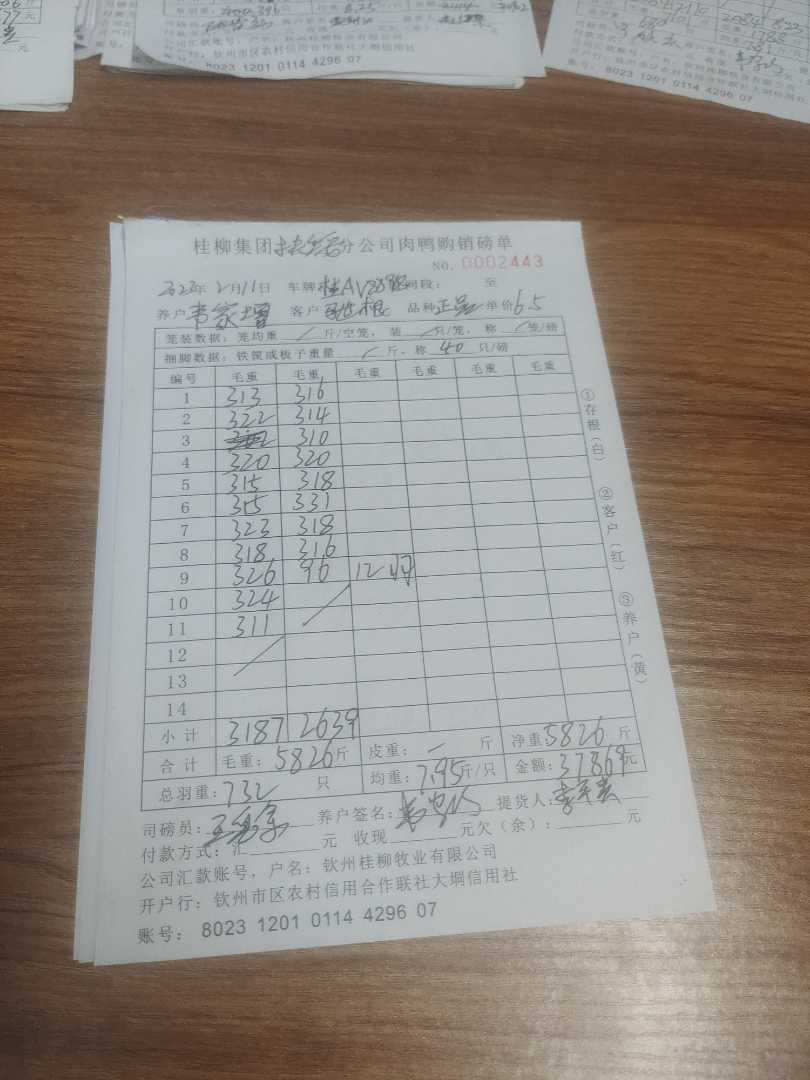 8023 1201 0114 4296 07
账号: 8023 1201 0114 4296 07
桂柳集团扶绥分公司肉鸭购销磅单
NO. 0002443
2月11日 车牌 时间段: 至
养户 韦家增 客户 品种 正品 单价 6.5
笼装数据: 笼均重 / 斤/空笼, 装 / 只/笼, 称 / 笼/磅
捆脚数据: 铁镫或板子重量 / 斤, 称 40 只/磅
编号 毛重 毛重 毛重 毛重 毛重 毛重
1 313 316
2 322 314
3 310
4 320 320
5 315 318
6 315 331
7 323 318
8 318 316
9 326 96 12只
10 324
11 311
12
13
14
小计 3187 2639
合计 毛重: 5826斤 皮重: 一 斤 净重: 5826 斤
总羽重: 732 只 均重: 7.95斤/只 金额: 37869元
司磅员: 养户签名: 提货人:
付款方式: 汇 元 收现 元欠(余): 元
公司汇款账号, 户名: 钦州桂柳牧业有限公司
开户行: 钦州市区农村信用合作联社大垌信用社
账号: 8023 1201 0114 4296 07
①存根(白)
②客户(红)
③养户(黄)